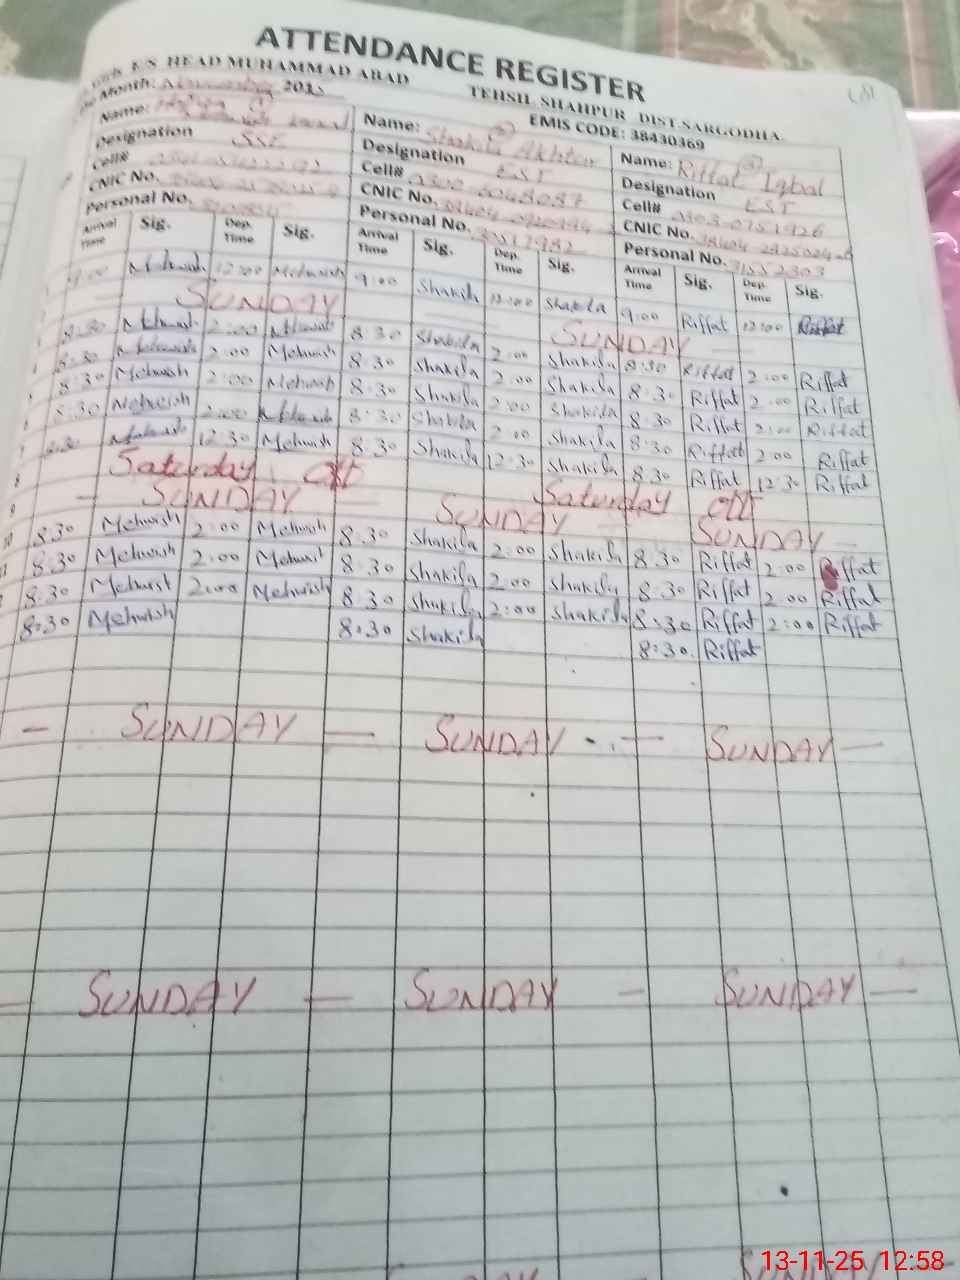 ATTENDANCE REGISTER
E/S HEAD MUHAMMAD ABAD TEHSIL SHAHPUR DIST.SARGODHA.
Month: November EMIS CODE: 38430369
Name: Name: Shakila Akhtar Name: Riffat Iqbal
Designation SSE Designation EST Designation EST
Cell# Cell# Cell# 0303-0751926
CNIC No. CNIC No. CNIC No.
Personal No. Personal No. Personal No. 31552303
Arrival Time Sig. Dep. Time Sig. Arrival Time Sig. Dep. Time Sig. Arrival Time Sig. Dep. Time Sig.
9:00 Mehwish 12:00 Mehwish 9:00 Shakila 12:00 Shakila 9:00 Riffat 12:00 Riffat
SUNDAY — SUNDAY —
8:30 Mehwish 2:00 Mehwish 8:30 Shakila 2:00 Shakila 8:30 Riffat 2:00 Riffat
8:30 Mehwish 2:00 Mehwish 8:30 Shakila 2:00 Shakila 8:30 Riffat 2:00 Riffat
8:30 Mehwish 2:00 Mehwish 8:30 Shakila 2:00 Shakila 8:30 Riffat 2:00 Riffat
8:30 Mehwish 2:00 Mehwish 8:30 Shakila 2:00 Shakila 8:30 Riffat 2:00 Riffat
8:30 Mehwish 12:30 Mehwish 8:30 Shakila 12:30 Shakila 8:30 Riffat 12:30 Riffat
8 Saturday off Saturday off
9 — SUNDAY — SUNDAY — SUNDAY —
10 8:30 Mehwish 2:00 Mehwish 8:30 Shakila 2:00 Shakila 8:30 Riffat 2:00 Riffat
8:30 Mehwish 2:00 Mehwish 8:30 Shakila 2:00 Shakila 8:30 Riffat 2:00 Riffat
8:30 Mehwish 2:00 Mehwish 8:30 Shakila 2:00 Shakila 8:30 Riffat 2:00 Riffat
8:30 Mehwish 8:30 Shakila 8:30 Riffat
— SUNDAY — SUNDAY — SUNDAY —
— SUNDAY — SUNDAY — SUNDAY —
SUNDAY
13-11-25 12:58